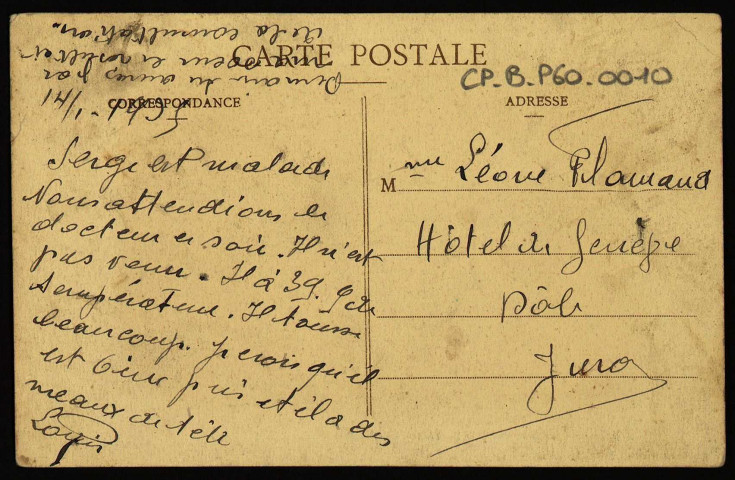 CARTE POSTALE
CP.B.P60.0010
CORRESPONDANCE
ADRESSE
Serge est malade
Nous attendions le
docteur ce soir. Il n'est
pas venu. Il a 39.9 de
température. Il tousse
beaucoup. Je crois qu'il
est bien pris et il a des
maux de tête
Louis
Mme Léone Flamand
Hôtel de Genève
Dôle
Jura
1/41
Demain tu auras par
ma soeur le résultat
de la consultation.